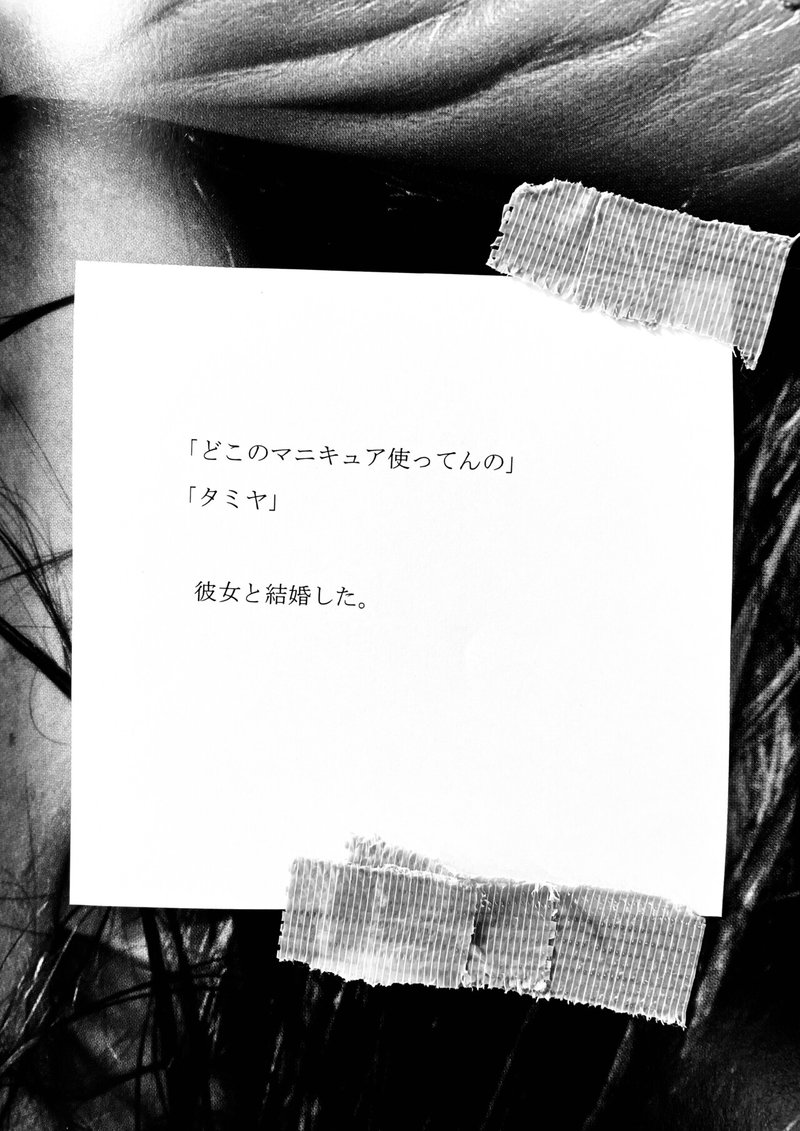 「どこのマニキュア使ってんの」
「タミヤ」
彼女と結婚した。